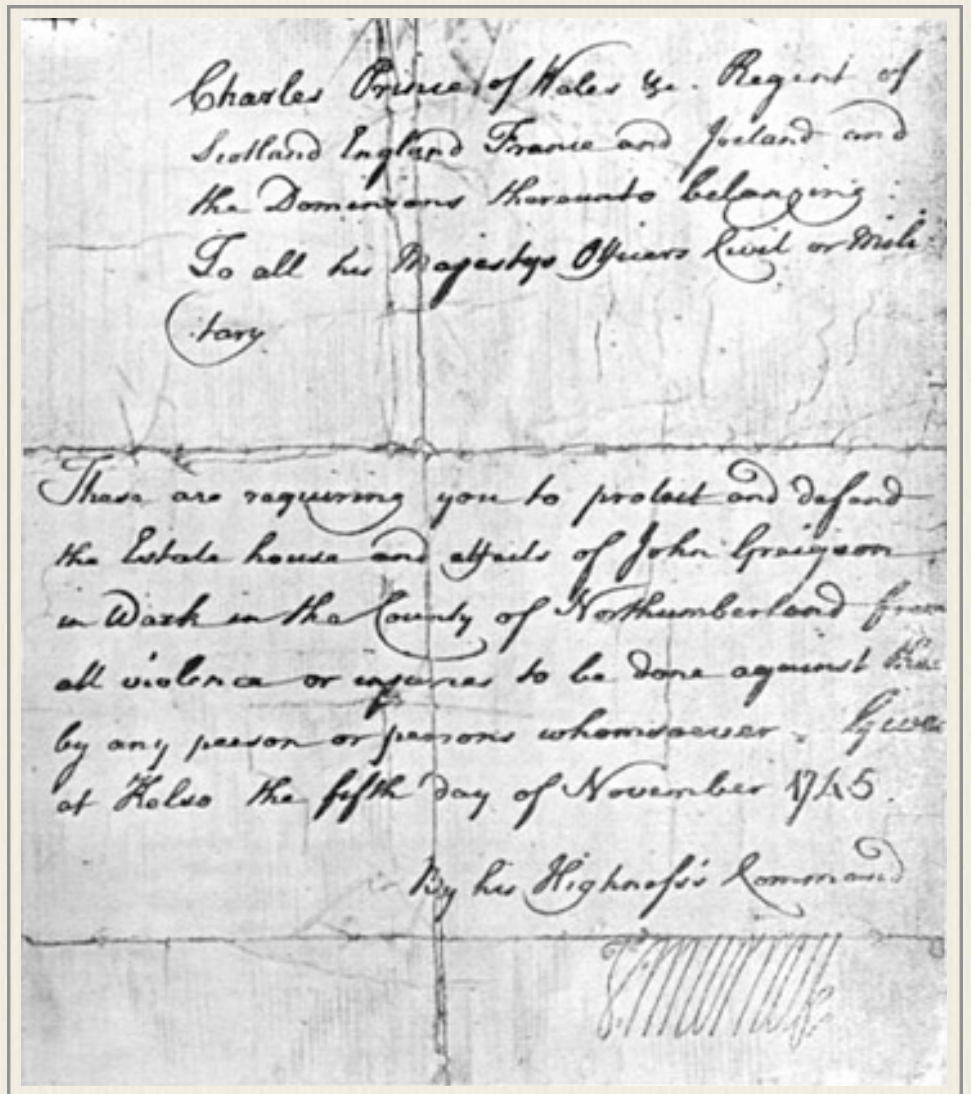 Charles Prince of Wales &c. Regent of
Scotland England France and Ireland and
the Dominions thereunto belonging
To all his Majestys Officers Civil or Mili
tary
These are requiring you to protect and defend
the Estate house and effects of John Greigson
in Wark in the County of Northumberland from
all violence or injuries to be done against
by any person or persons whomsoever. Given
at Kelso the fifth day of November 1745.
By his Highness's Command
Jo: Murray